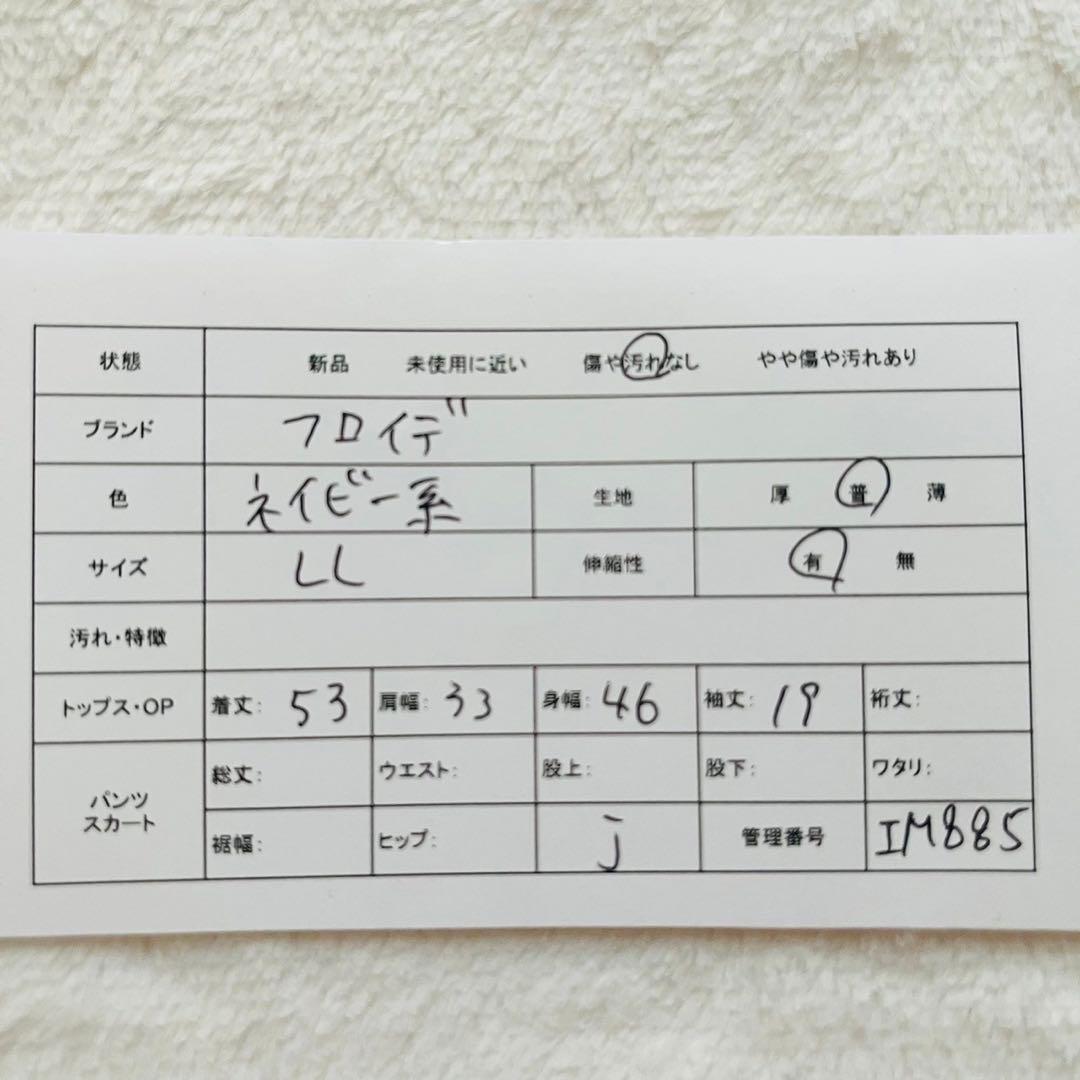 状態 新品 未使用に近い 傷や汚れなし やや傷や汚れあり
ブランド フロイデ
色 ネイビー系 生地 厚 普 薄
サイズ LL 伸縮性 有 無
汚れ・特徴
トップス・OP 着丈: 53 肩幅: 33 身幅: 46 袖丈: 19 裄丈:
パンツ
スカート
総丈: ウエスト: 股上: 股下: ワタリ:
裾幅: ヒップ: j 管理番号 IM885